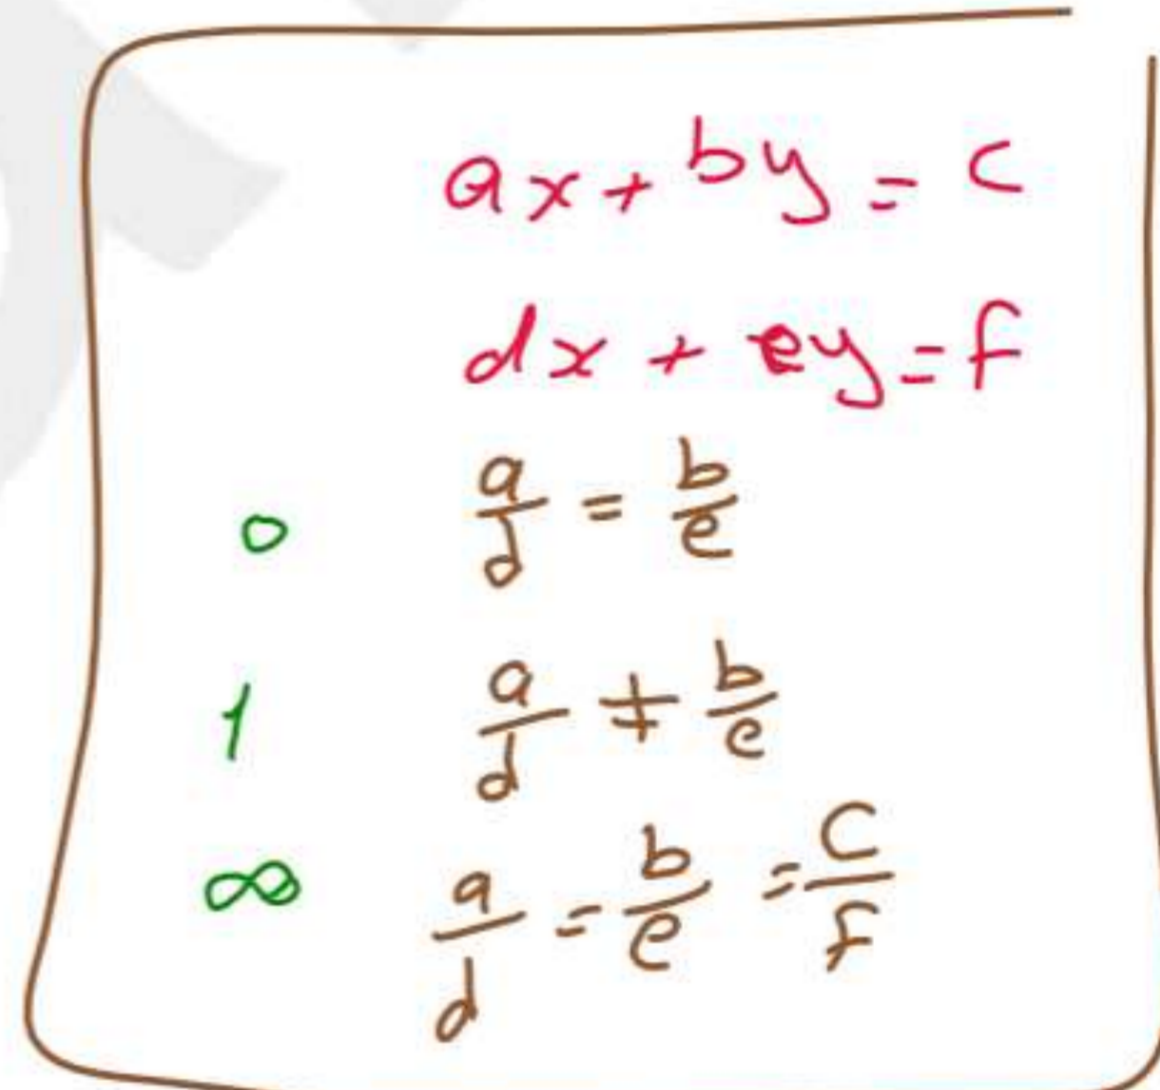 ax + by = c
dx + ey = f
0 a/d = b/e
1 a/d ≠ b/e
∞ a/d = b/e = c/f